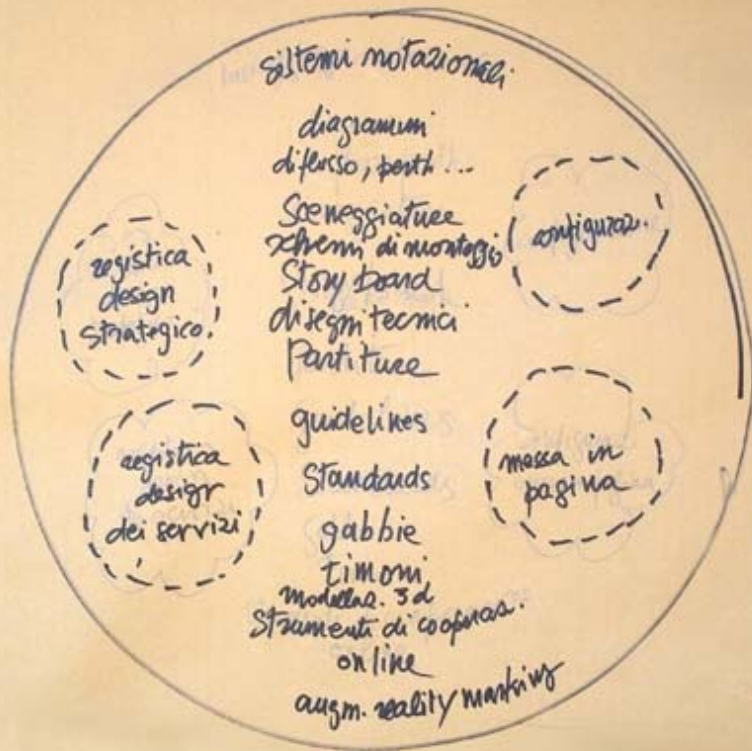 sistemi notazionali
diagrammi
di flusso, perth...
Sceneggiature
schemi di montaggio
Story board
disegni tecnici
Partiture
guidelines
Standards
gabbie
timoni
modellaz. 3d
Strumenti di cooperaz.
online
augm. reality
registica
design
strategico.
registica
design
dei servizi
configuraz.
messa in
pagina